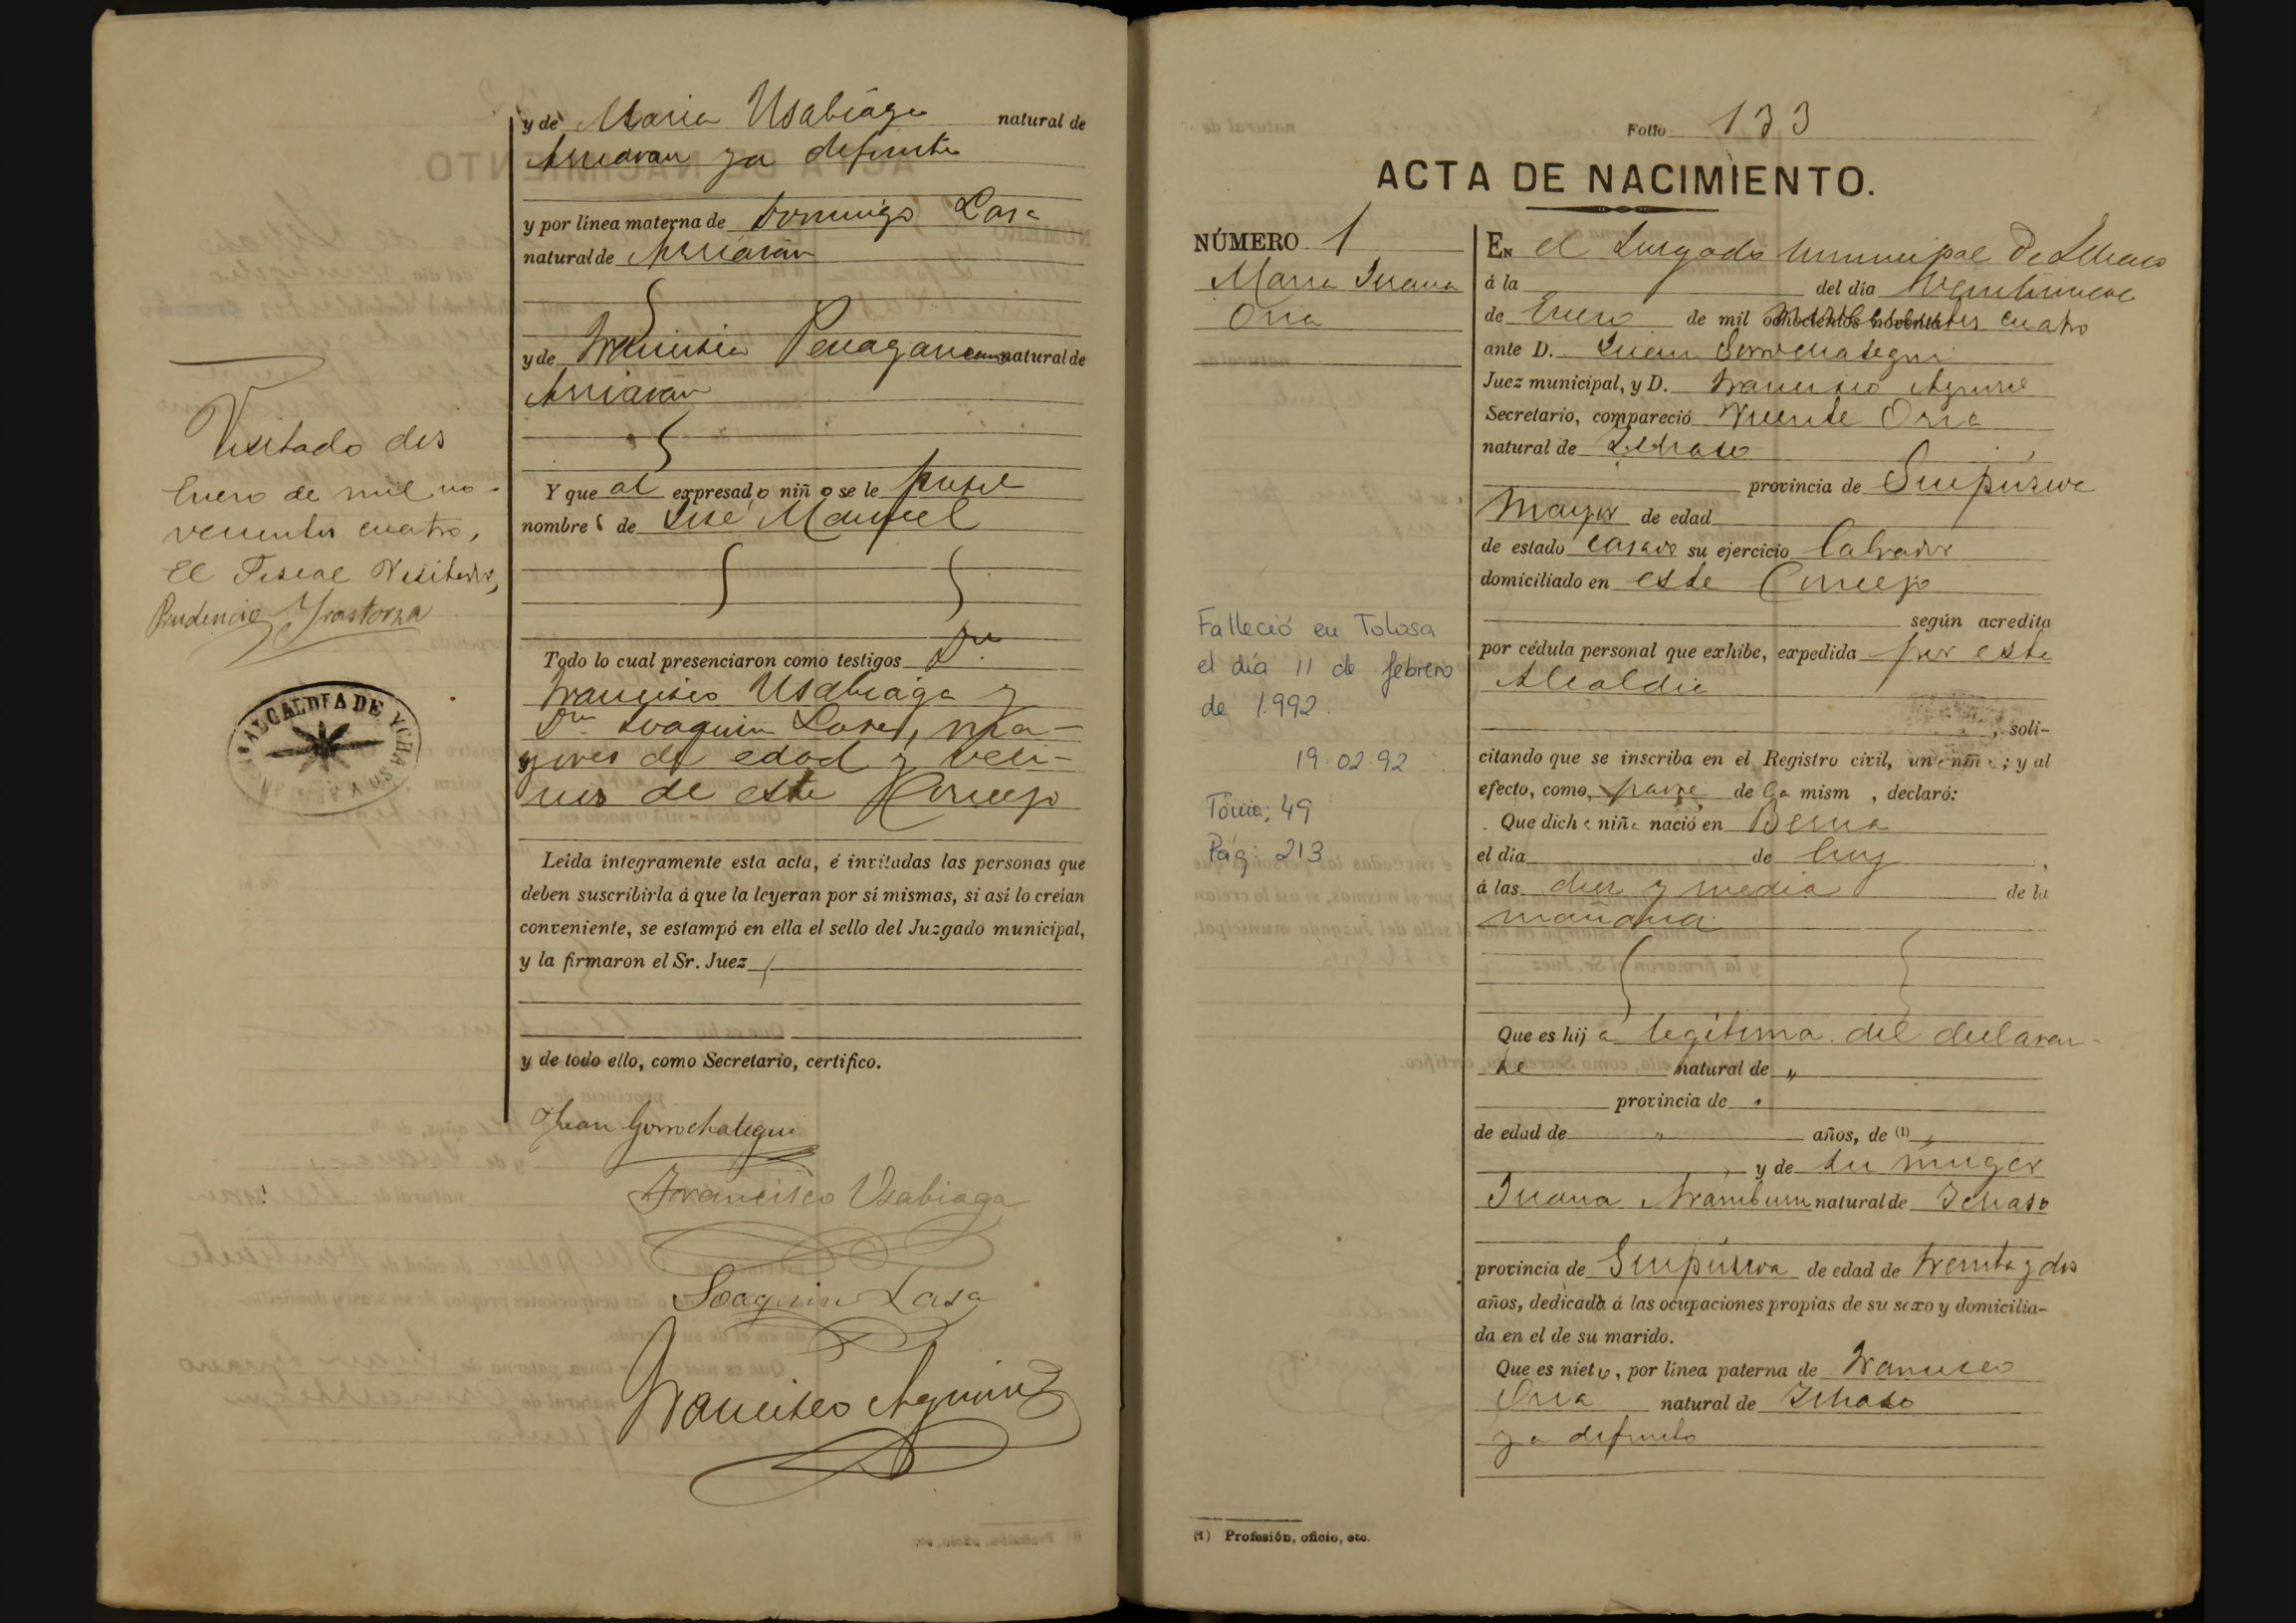 y de Maria Usabiaga natural de
Arriaran ya difunta
y por línea materna de Domingo Lasa
natural de Arriarán
y de Francisca natural de
Arriaran
Y que al expresado niño se le puso
nombre s de José Manuel
Todo lo cual presenciaron como testigos Dn.
Francisco Usabiaga y
Dn Joaquin Lasa, ma-
yores de edad y veci-
nos de este Concejo
Leída íntegramente esta acta, é invitadas las personas que
deben suscribirla á que la leyeran por sí mismas, si así lo creían
conveniente, se estampó en ella el sello del Juzgado municipal,
y la firmaron el Sr. Juez
y de todo ello, como Secretario, certifico.
Juan Gorrochategui
Francisco Usabiaga
Joaquin Lasa
Francisco Aguirre
Visitado dos
Enero de mil no-
vecientos cuatro,
El Fiscal Visitador,
Prudencio Yrastorza
ALCALDIA DE YCHASO
Folio 133
ACTA DE NACIMIENTO.
NÚMERO 1
Maria Juana
Oria
Falleció en Tolosa
el día 11 de febrero
de 1.992.
19.02.92
Tomo: 49
Pág: 213
En el Juzgado municipal de Ichaso
á la del día Veintinueve
de Enero de mil ochocientos noventa novecientos cuatro
ante D. Juan Gorrochategui
Juez municipal, y D. Francisco Aguirre
Secretario, compareció Vicente Oria
natural de Ichaso
provincia de Guipúzcoa
Mayor de edad
de estado casado su ejercicio labrador
domiciliado en este Concejo
según acredita
por cédula personal que exhibe, expedida por esta
Alcaldia
, soli-
citando que se inscriba en el Registro civil, una niña; y al
efecto, como padre de la mism , declaró:
Que dicha niña nació en
el día de hoy,
á las diez y media de la
mañana
Que es hija legítima del declaran-
te natural de "
provincia de "
de edad de " años, de (1) "
y de su muger
Juana Aramburu natural de Ichaso
provincia de Guipúzcoa de edad de treinta y dos
años, dedicada á las ocupaciones propias de su sexo y domicilia-
da en el de su marido.
Que es nieto, por línea paterna de Francisco
Oria natural de Ichaso
ya difunto
(1) Profesión, oficio, etc.